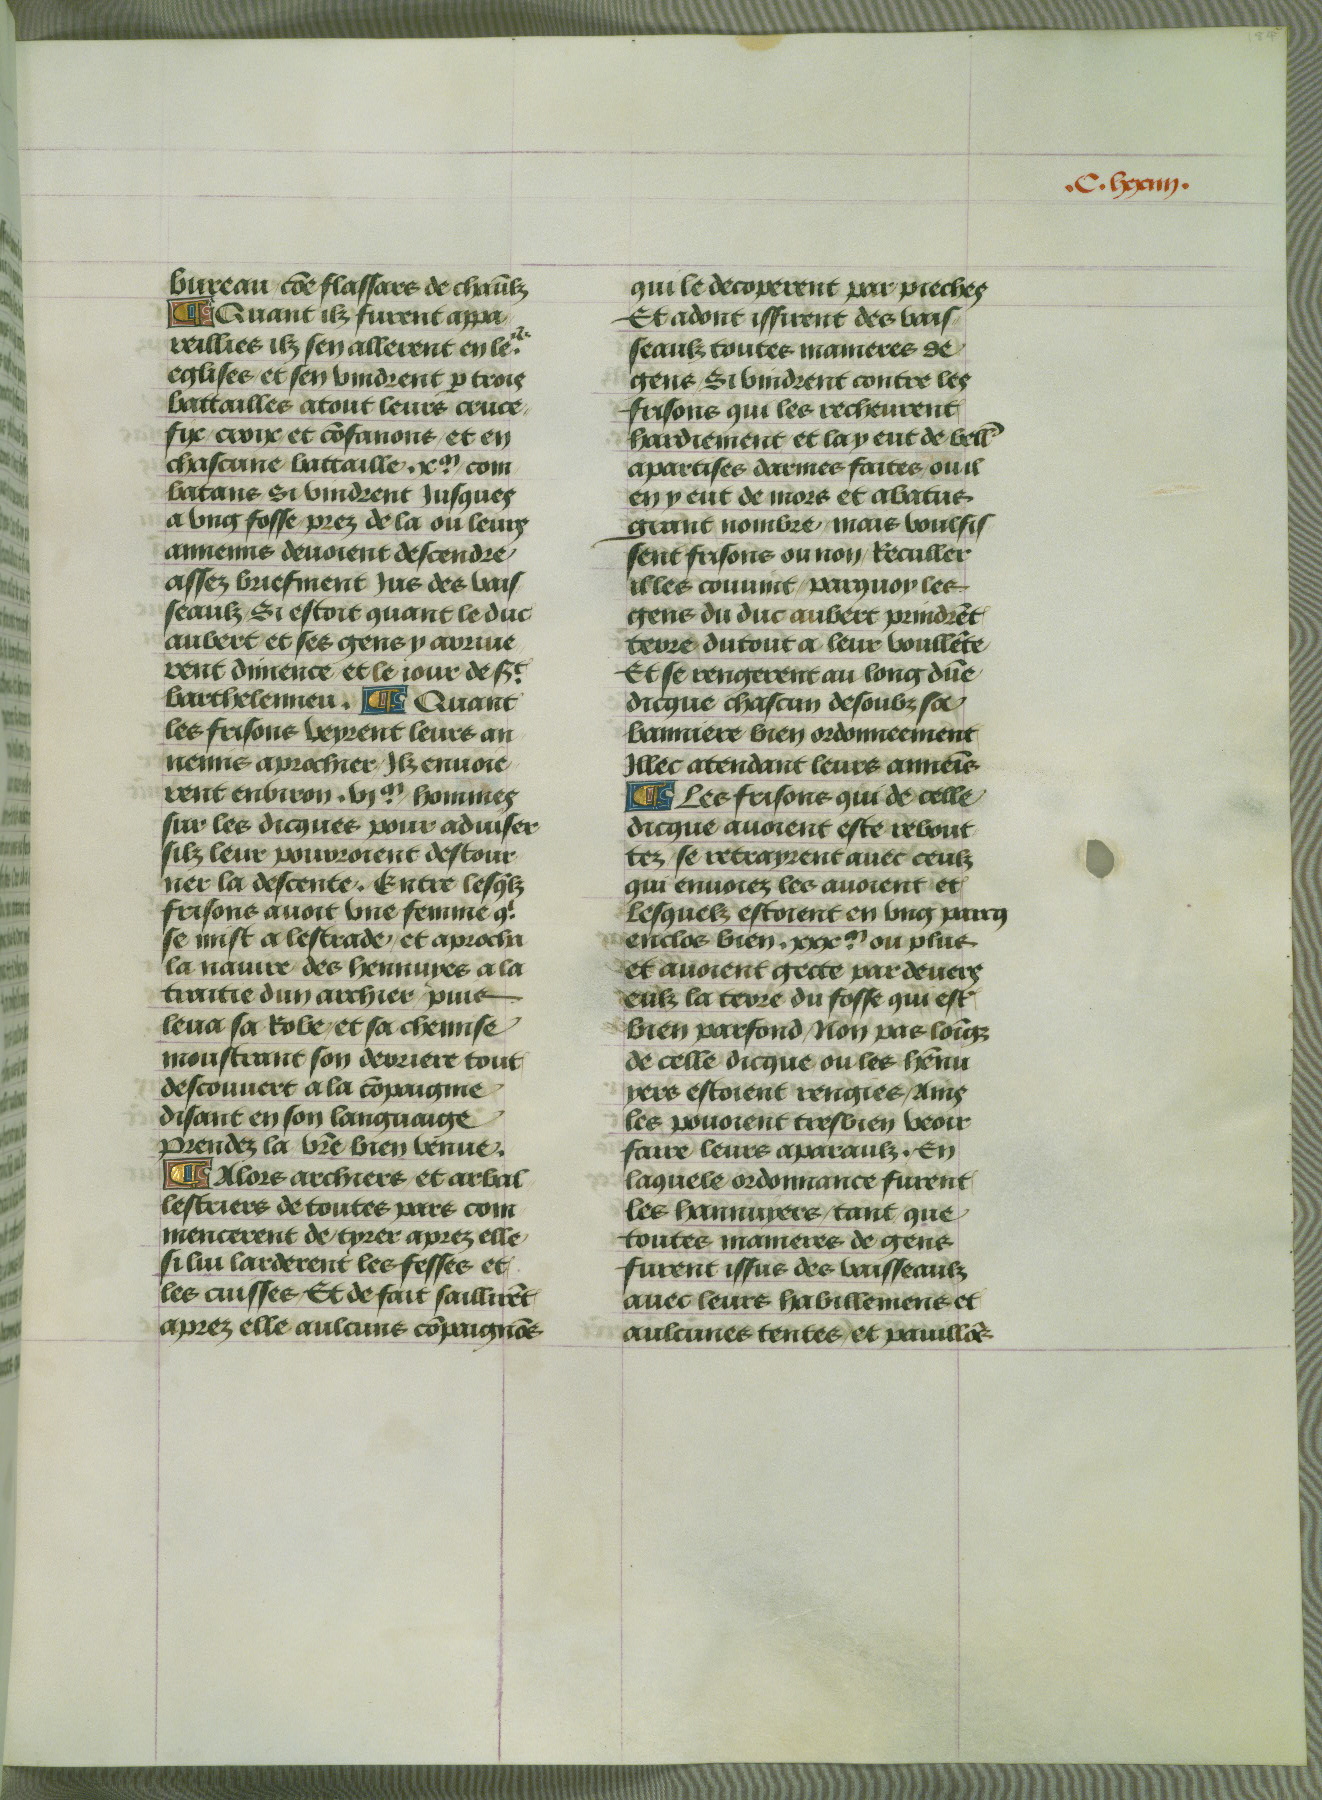 .C. lxxiiij.
bureau cõe flassars de chaũlz
¶ Quant ilz furent appa
reillies ilz sen allerent en leᵘʳˢ
eglises et sen vindrent ꝑ trois
battailles atout leurs cruce
fix croix et cõfanons et en
chascune battaille .xᵐ. com
batans Si vindrent Jusques
a vng fosse prez de la ou leurs
annemis deuoient descendre
assez briefment Jus des vais
seaulz Si estoit quant le duc
aubert et ses gens y arriue
rent dimence et le iour de sᵗ.
barthelemieu. ¶ Quant
les frisons veyrent leurs an
nemis aprochier Ilz enuoie
rent enuiron .vjᵐ. hommes
sur les dicques pour aduiser
silz leur pourroient destour
ner la descente. Entre lesq̃lz
frisons auoit vne femme qⁱ
se mist a lestrade et aprocha
la nauire des hennuyes a la
traitie dun archier puis
leua sa Robe et sa chemise
moustrant son derriere tout
descouuert a la cõpaignie
disant en son languaige
prendez la vr̃e bien venue.
¶ Alors archiers et arbal
lestriers de toutes pars com
mencerent de tyrer aprez elle
si lui larderent les fesses et
les cuisses Et de fait saillirẽt
aprez elle aulcuns cõpaignõs
qui le decoperent par pieches
Et adont issirent des vais
seaulz toutes manieres de
gens Si vindrent contre les
frisons qui les recheurent
hardiement et la y eut de bell'
apartises darmes faites ou il
en y eut de mors et abatus
grant nombre mais voulsis
sent frisons ou non Reculler
il les couuint parquoy les
gens du duc aubert prindrẽt
terre du tout a leur voullẽte
Et se rengerent au long dũe
dicque chascun desoubz sa
banniere bien ordonneement
Illec atendant leurs annẽis
¶ Les frisons qui de celle
dicque auoient este rebout
tez se retrayrent auec ceulz
qui enuoiez les auoient et
lesquelz estoient en vng parcq
enclos bien .xxxᵐ. ou plus
et auoient gecte par deuers
eulz la terre du fosse qui est
bien parfond Non pas loĩgz
de celle dicque ou les hẽnu
yers estoient rengies Ains
les pouoient tresbien veoir
faire leurs aparaulz. En
laquele ordonnance furent
les hannuyers tant que
toutes manieres de gens
furent issus des vaisseaulz
auec leurs habillemens et
aulcunes tentes et pauillõs